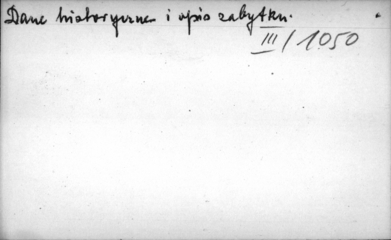 Dane historyczne i opis zabytku.
III/1050